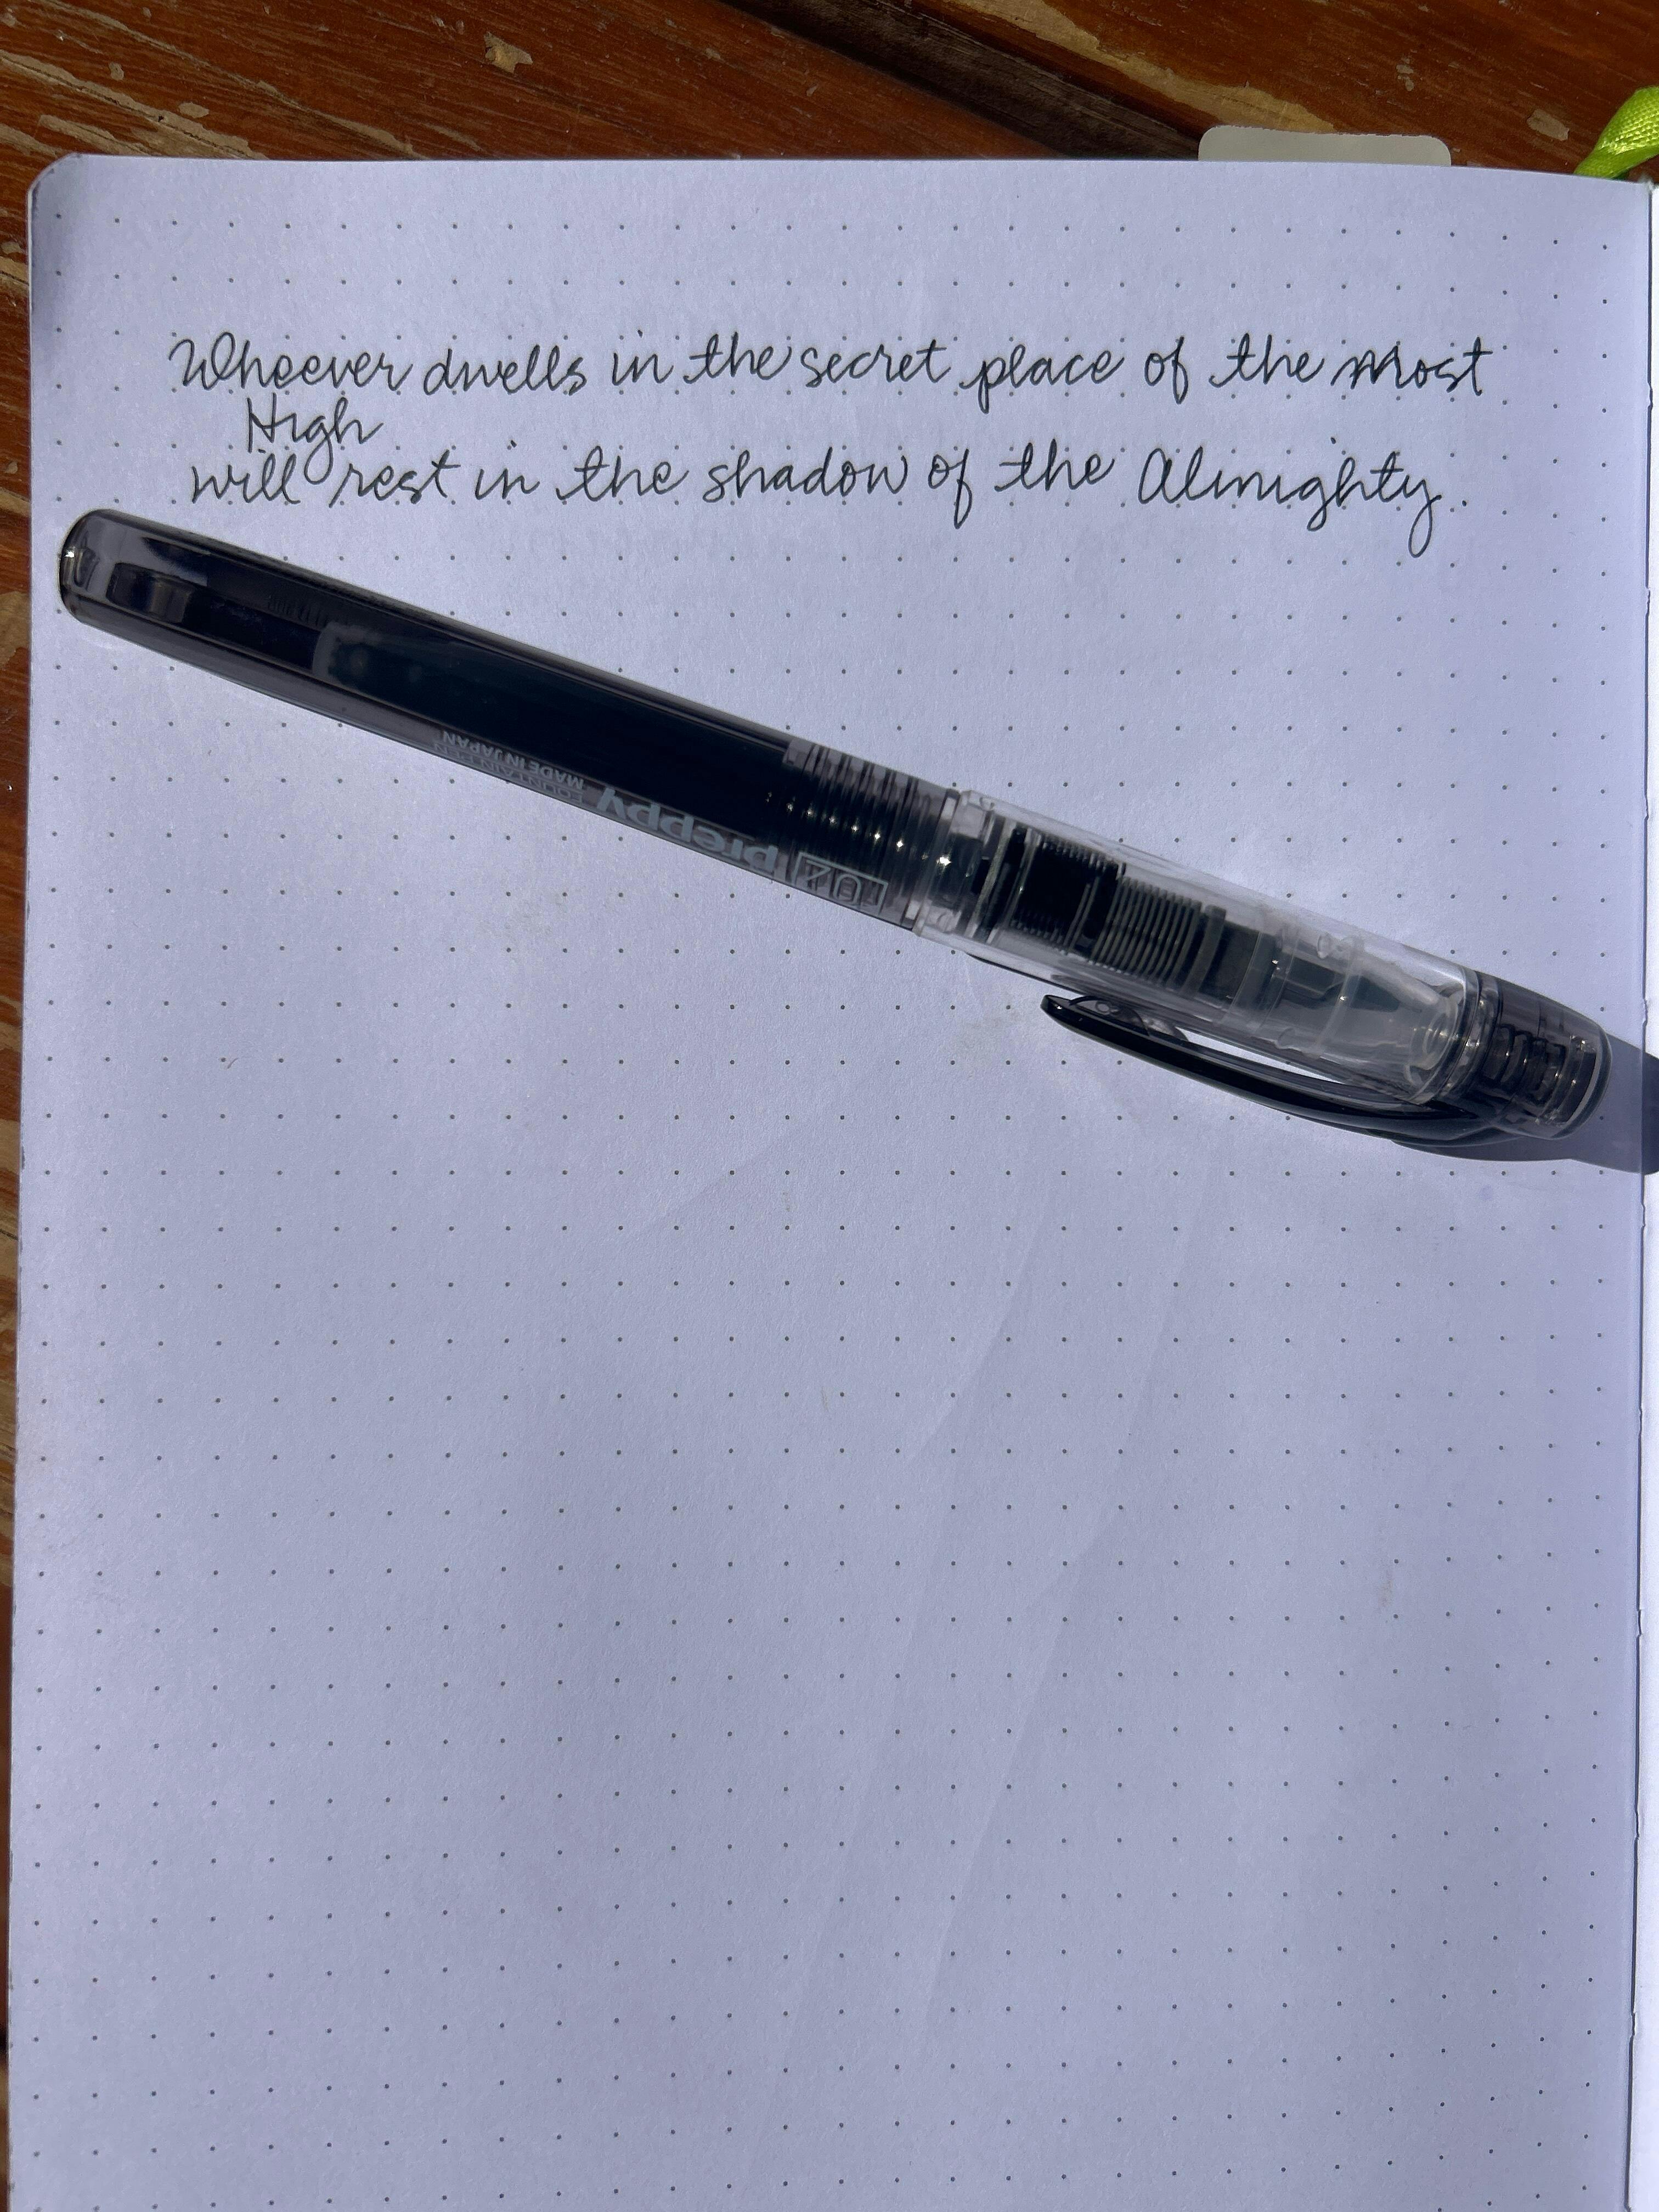 Wheever dwells in the secret place of the Most
High
will rest in the shadow of the Almighty.
MADE IN JAPAN
FOUNTAIN PEN
preppy
02